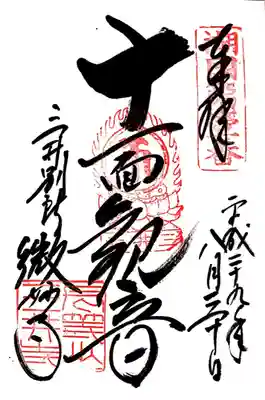 奉拝
平成二十九年
八月二十日
十一面観音
三井別所
微妙寺